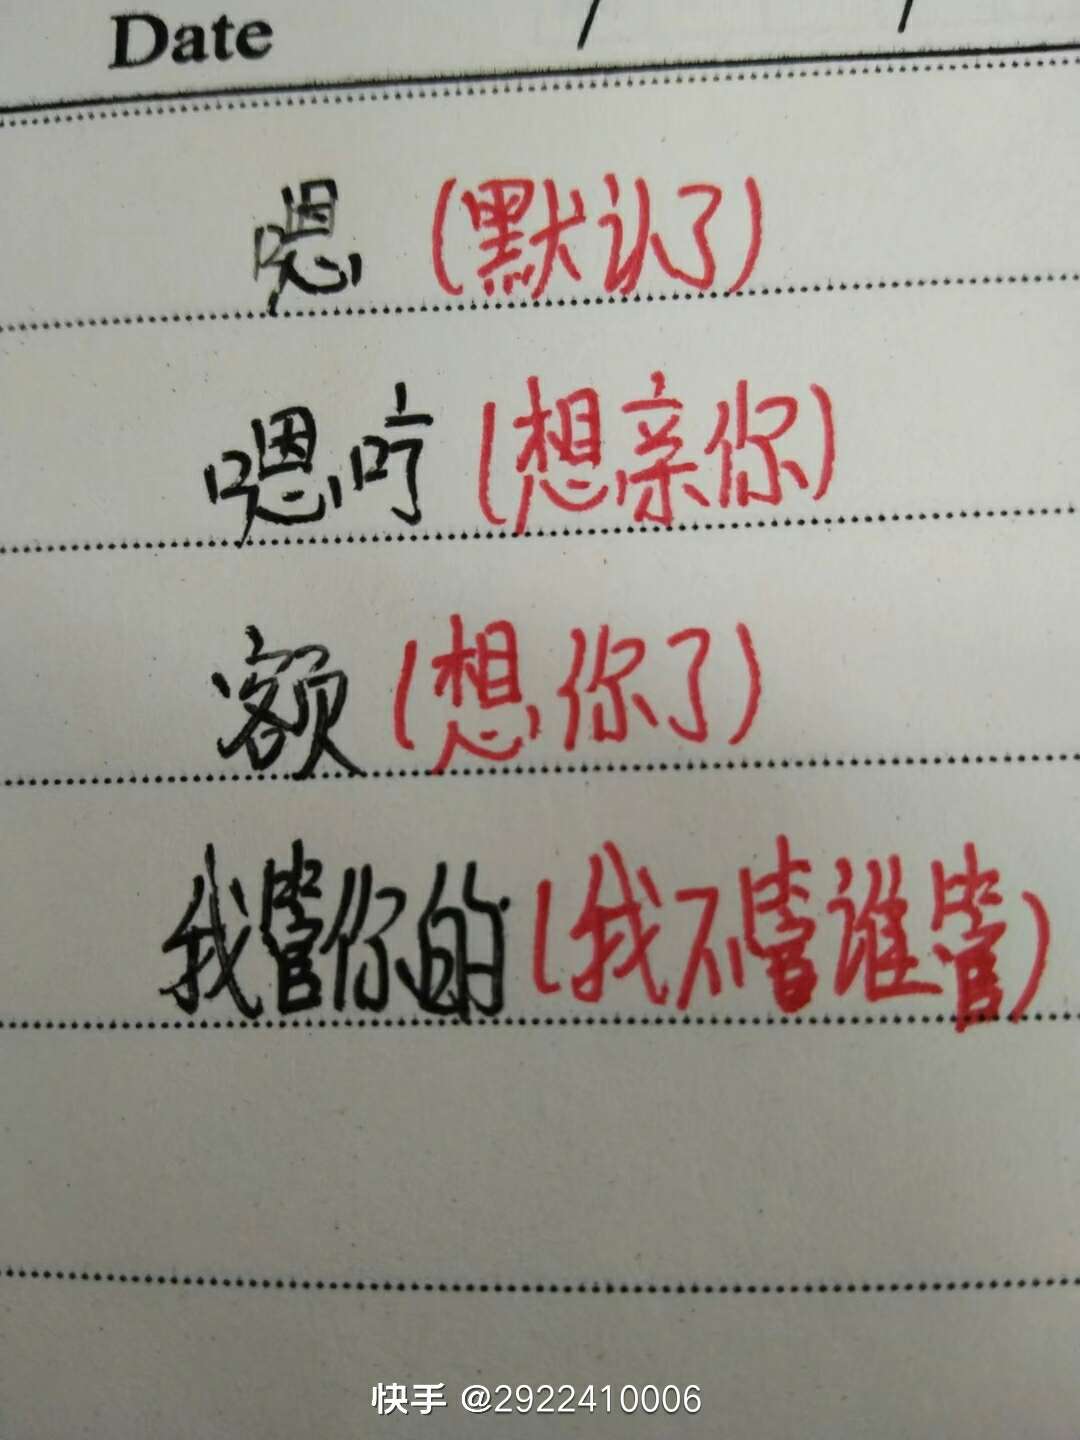 Date / /
嗯 (默认了)
嗯哼 (想亲你)
额 (想你了)
我管你的 (我不管谁管)
快手 @2922410006